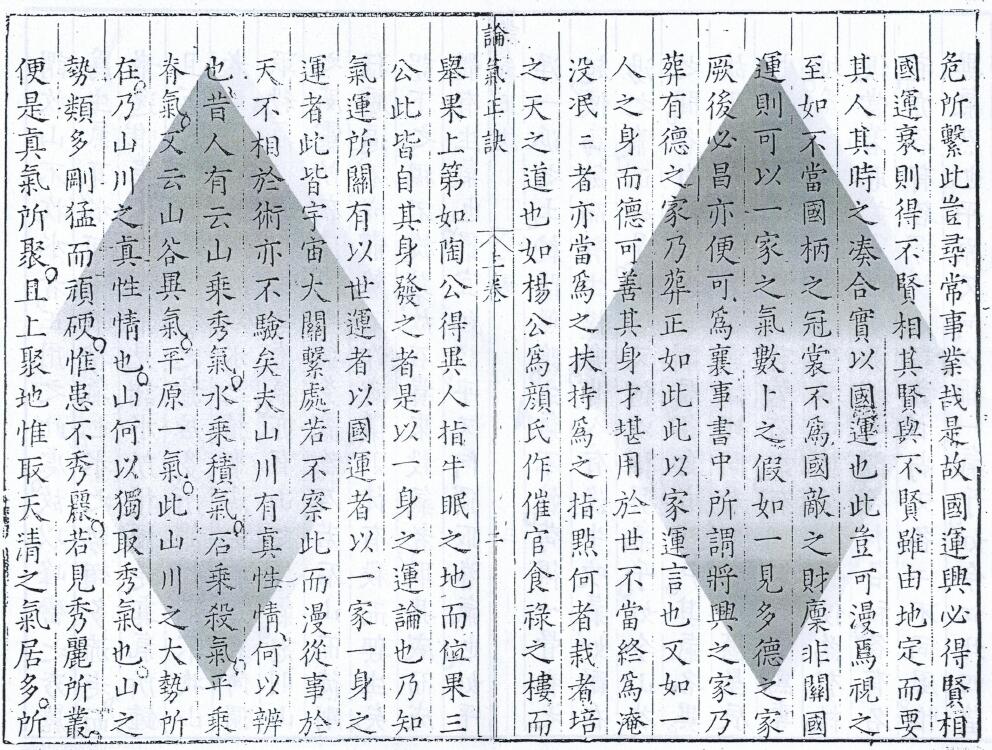 危所繫此豈尋常事業哉是故國運興必得賢相
國運衰則得不賢相其賢與不賢雖由地定而要
其人其時之湊合實以國運也此豈可漫焉視之
至如不當國柄之冠裳不爲國敵之財廩非關國
運則可以一家之氣數卜之假如一見多德之家
厥後必昌亦便可爲襄事書中所謂將興之家乃
葬有德之家乃葬正如此此以家運言也又如一
人之身而德可善其身才堪用於世不當終爲淹
没冺二者亦當爲之扶持爲之指點何者栽者培
之天之道也如楊公爲顔氏作催官食祿之樓而
論氣正訣
上卷
二
舉果上第如陶公得異人指牛眠之地而位果三
公此皆自其身發之者是以一身之運論也乃知
氣運所關有以世運者以國運者以一家一身之
運者此皆宇宙大關繫處若不察此而漫從事於
天不相於術亦不驗矣夫山川有真性情何以辨
也昔人有云山乘秀氣水乘積氣石乘殺氣平乘
脊氣又云山谷異氣平原一氣此山川之大勢所
在乃山川之真性情也山何以獨取秀氣也山之
勢類多剛猛而頑硬惟患不秀麗若見秀麗所叢
便是真氣所聚且上聚地惟取天清之氣居多所